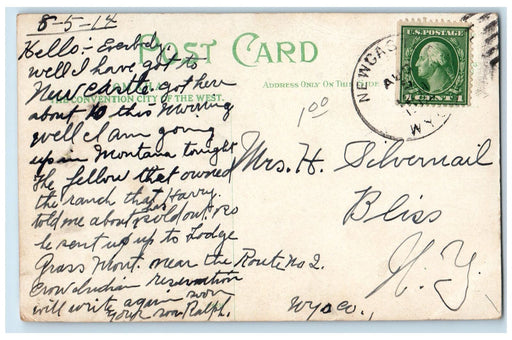 8-5-14
Hello:- Everbody.
POST CARD
well I have got to
Newcastle. got here
THE CONVENTION CITY OF THE WEST.
ADDRESS ONLY ON THIS SIDE
about 10 this morning
well I am going
up in Montana tonight
The fellow that owned
the ranch that Harry.
told me about has sold out so
he sent us up to Lodge
Grass Mont. near the
Crow Indian reservation
will write again soon
your son Ralph.
1 00
NEWCAS
AU
WYO
U.S. POSTAGE
1 CENT 1
Mrs. H. Silvernail
Bliss
N. Y.
Route no 2.
Wyo Co.,